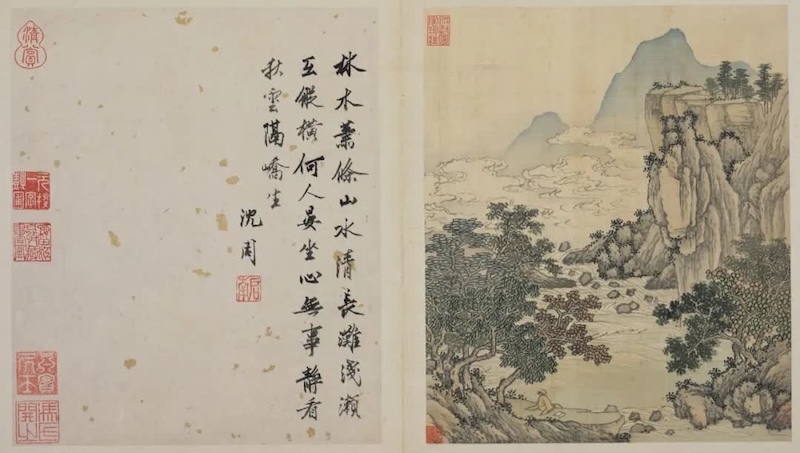 林木蕭條山水清長灘淺瀨
互縱橫何人晏坐心無事靜看
秋雲隔嶠生
沈周
清賞